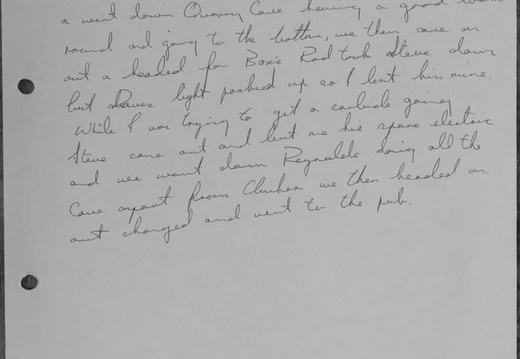 a went down Quarry Cave having a good look
round and going to the bottom, we then came on
out a headed for Box's Rod took Steve down
but Daves light packed up so I lent him mine.
While I was trying to get a carbide going
Steve came out and lent me his spare electric
and we went down Reynolds doing all the
Cave apart from Chicken we then headed on
out changed and went to the pub.